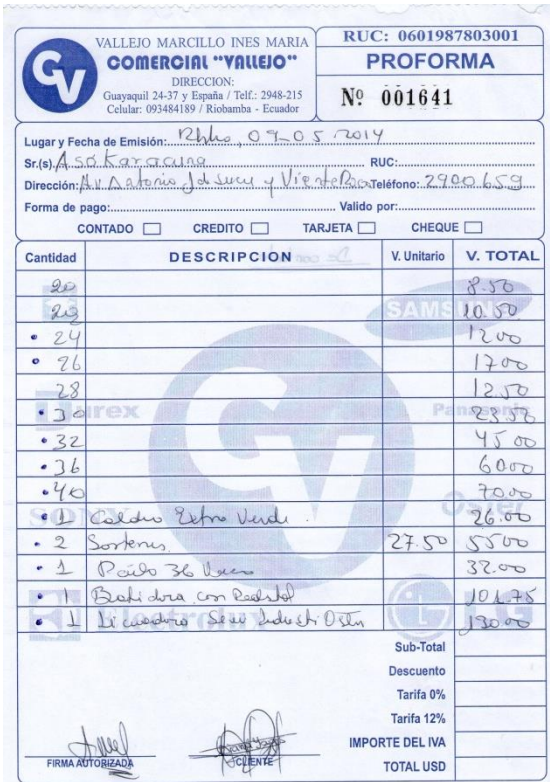 VALLEJO MARCILLO INES MARIA
COMERCIAL "VALLEJO"
DIRECCION:
Guayaquil 24-37 y España / Telf.: 2948-215
Celular: 093484189 / Riobamba - Ecuador
RUC: 0601987803001
PROFORMA
Nº 001641
Lugar y Fecha de Emisión: 09-05-2014
Sr.(s). Aso Karacuna RUC:
Dirección: Av Antonio José y Teléfono: 2900659
Forma de pago: Valido por:
CONTADO CREDITO TARJETA CHEQUE
Cantidad DESCRIPCION V. Unitario V. TOTAL
20 8.50
20 10.50
24 1200
26 1700
28 12.50
30 23.50
32 45 00
36 6000
40 70.00
1 Caldro Extra Verde 26.00
2 Sartenes 27.50 5500
1 36 32.00
1 Batidora con 101.75
1 Licuadora Semi Industri Oster 130.00
SAMSUNG
urex
Panasonic
SONY
Oster
Electrolux
LG
GV
Sub-Total
Descuento
Tarifa 0%
Tarifa 12%
IMPORTE DEL IVA
TOTAL USD
FIRMA AUTORIZADA CLIENTE